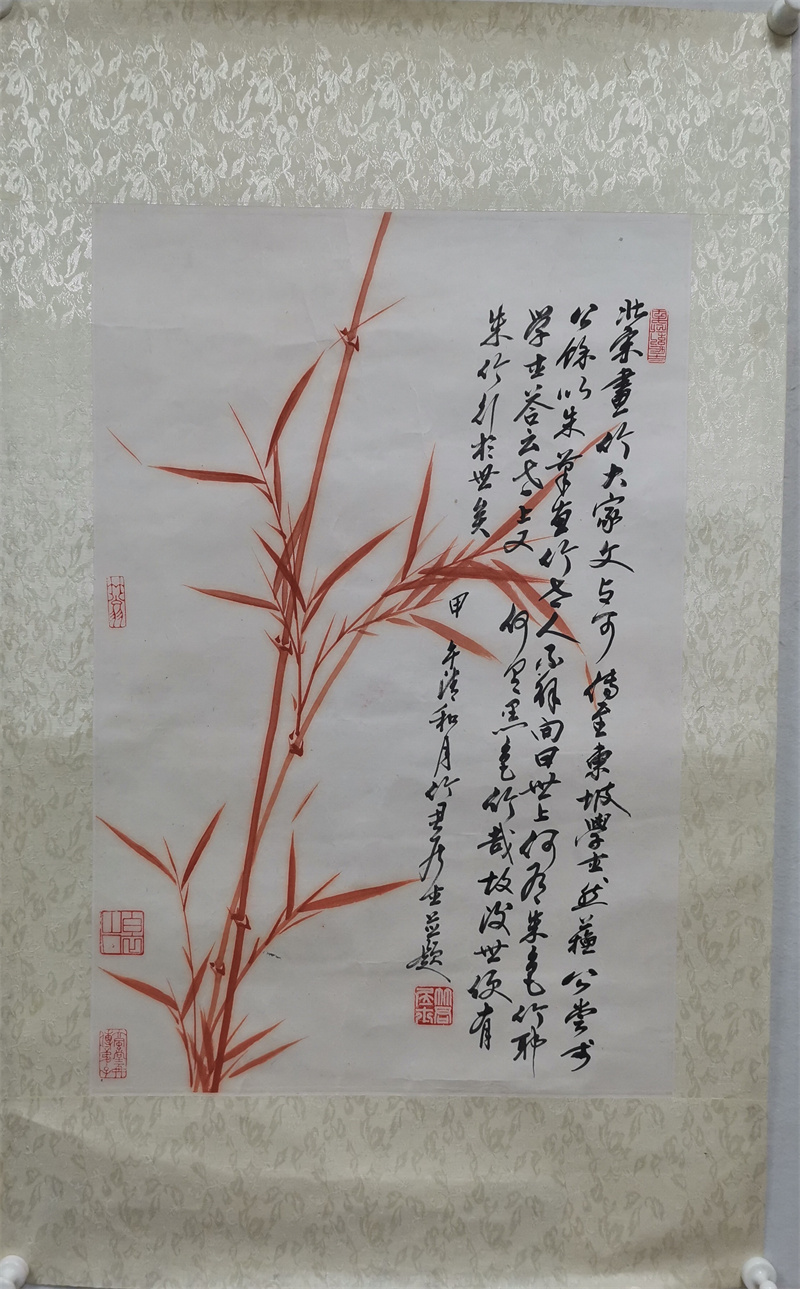 北宋畫竹大家文与可傳至東坡學士然蘇公嘗於
公餘以朱筆画竹世人不解问曰世上何有朱色竹耶
学士答云世上又何黑色竹哉故後世便有
朱竹行於世矣
甲午清和月竹君居士並题